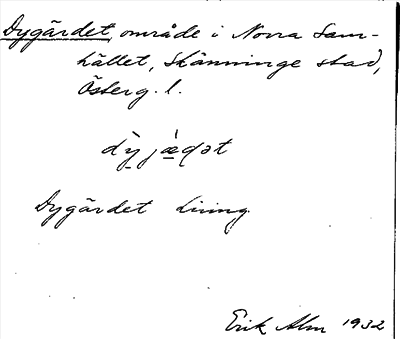 Dygärdet, område i Norra Sam-
hället, Skänninge stad,
Österg. l.
Dygärdet Living
Erik Alm 1932